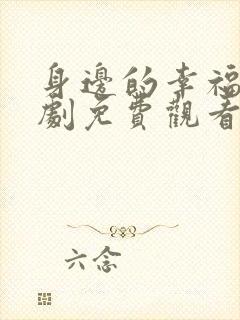 身邊的幸福
劇免費觀看
六念